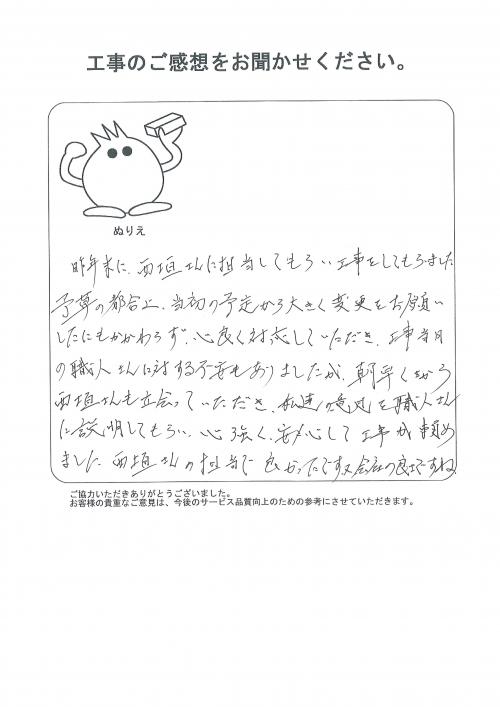 工事のご感想をお聞かせください。
ぬりえ
昨年末に、西垣さんに担当してもらい工事をしてもらいました
予算の都合上、当初の予定から大きく変更をお願い
したにもかかわらず、心良く対応していただき、工事当日
の職人さんに対する不安もありましたが、朝早くから
西垣さんも立会っていただき、私達の意見を職人さん
に説明してもらい、心強く、安心して工事が頼め
ました 西垣さんの担当で良かったです 会社の良さですね
ご協力いただきありがとうございました。
お客様の貴重なご意見は、今後のサービス品質向上のための参考にさせていただきます。